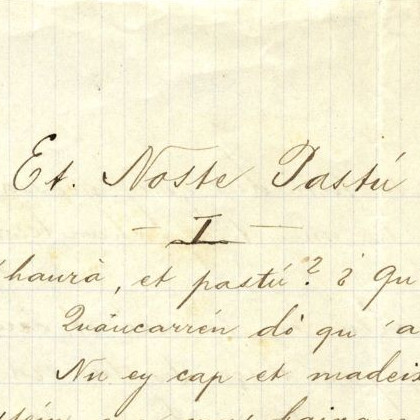 Et. Noste Pastú
I
haurà, et pastú? ¿ Qu
Quáucarrén dó qu'a
Nu ey cap et madei